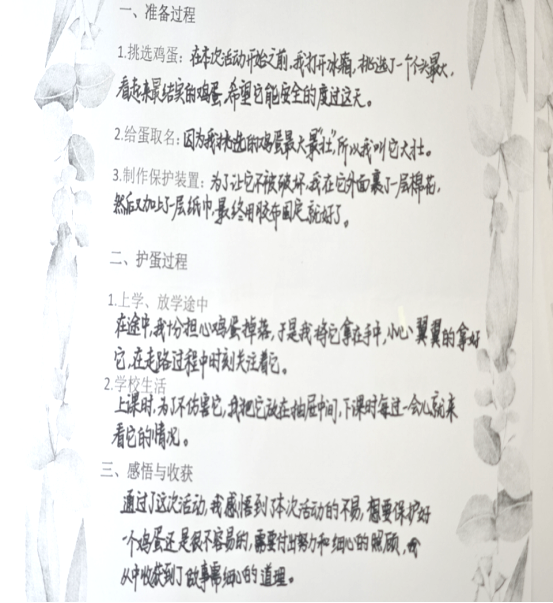 一、准备过程
1.挑选鸡蛋：在本次活动开始之前，我打开冰箱，挑选了一个个头最大，
看起来最结实的鸡蛋，希望它能安全的度过这天。
2.给蛋取名：因为我挑选的鸡蛋最大最“壮”，所以我叫它大壮。
3.制作保护装置：为了让它不被破坏，我在它外面裹了一层棉花，
然后又加上了一层纸巾，最终用胶布固定就好了。
二、护蛋过程
1.上学、放学途中
在途中，我十分担心鸡蛋掉落，于是我将它拿在手中，小心翼翼的拿好
它，在走路过程中时刻关注着它。
2.学校生活
上课时，为了不伤害它，我把它放在抽屉中间，下课时每过一会儿就来
看它的情况。
三、感悟与收获
通过了这次活动，我感悟到了本次活动的不易，想要保护好
一个鸡蛋还是很不容易的，需要付出努力和细心的照顾，
从中收获到了做事需细心的道理。